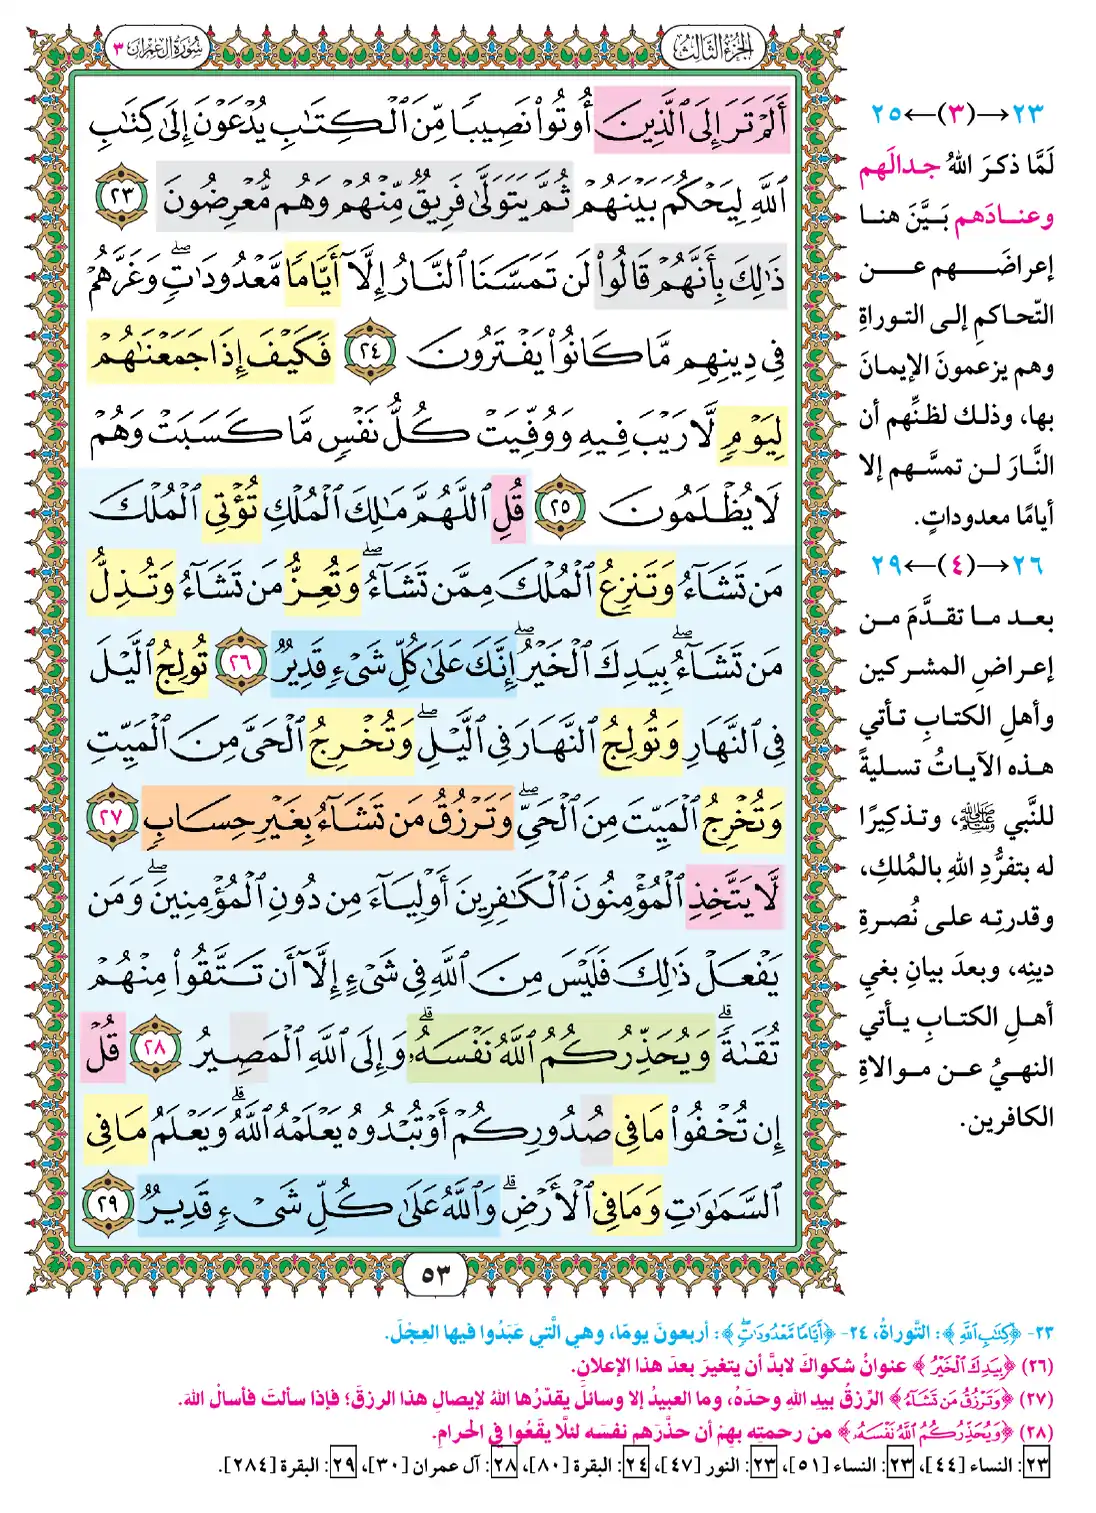 الجزء الثالث
سورة آل عمران ٣
أَلَمْ تَرَ إِلَى ٱلَّذِينَ أُوتُوا۟ نَصِيبًا مِّنَ ٱلْكِتَٰبِ يُدْعَوْنَ إِلَىٰ كِتَٰبِ
ٱللَّهِ لِيَحْكُمَ بَيْنَهُمْ ثُمَّ يَتَوَلَّىٰ فَرِيقٌ مِّنْهُمْ وَهُم مُّعْرِضُونَ ٢٣
ذَٰلِكَ بِأَنَّهُمْ قَالُوا۟ لَن تَمَسَّنَا ٱلنَّارُ إِلَّآ أَيَّامًا مَّعْدُودَٰتٍۖ وَغَرَّهُمْ
فِى دِينِهِم مَّا كَانُوا۟ يَفْتَرُونَ ٢٤ فَكَيْفَ إِذَا جَمَعْنَٰهُمْ
لِيَوْمٍ لَّا رَيْبَ فِيهِ وَوُفِّيَتْ كُلُّ نَفْسٍ مَّا كَسَبَتْ وَهُمْ
لَا يُظْلَمُونَ ٢٥ قُلِ ٱللَّهُمَّ مَٰلِكَ ٱلْمُلْكِ تُؤْتِى ٱلْمُلْكَ
مَن تَشَآءُ وَتَنزِعُ ٱلْمُلْكَ مِمَّن تَشَآءُۖ وَتُعِزُّ مَن تَشَآءُ وَتُذِلُّ
مَن تَشَآءُۖ بِيَدِكَ ٱلْخَيْرُۖ إِنَّكَ عَلَىٰ كُلِّ شَىْءٍ قَدِيرٌ ٢٦ تُولِجُ ٱلَّيْلَ
فِى ٱلنَّهَارِ وَتُولِجُ ٱلنَّهَارَ فِى ٱلَّيْلِۖ وَتُخْرِجُ ٱلْحَىَّ مِنَ ٱلْمَيِّتِ
وَتُخْرِجُ ٱلْمَيِّتَ مِنَ ٱلْحَىِّۖ وَتَرْزُقُ مَن تَشَآءُ بِغَيْرِ حِسَابٍ ٢٧
لَّا يَتَّخِذِ ٱلْمُؤْمِنُونَ ٱلْكَٰفِرِينَ أَوْلِيَآءَ مِن دُونِ ٱلْمُؤْمِنِينَۖ وَمَن
يَفْعَلْ ذَٰلِكَ فَلَيْسَ مِنَ ٱللَّهِ فِى شَىْءٍ إِلَّآ أَن تَتَّقُوا۟ مِنْهُمْ
تُقَىٰةًۗ وَيُحَذِّرُكُمُ ٱللَّهُ نَفْسَهُۥۗ وَإِلَى ٱللَّهِ ٱلْمَصِيرُ ٢٨ قُلْ
إِن تُخْفُوا۟ مَا فِى صُدُورِكُمْ أَوْ تُبْدُوهُ يَعْلَمْهُ ٱللَّهُۗ وَيَعْلَمُ مَا فِى
ٱلسَّمَٰوَٰتِ وَمَا فِى ٱلْأَرْضِۗ وَٱللَّهُ عَلَىٰ كُلِّ شَىْءٍ قَدِيرٌ ٢٩
٥٣
٢٣→(٣)←٢٥
لَمَّا ذكرَ اللهُ جدالَهم
وعنادَهم بَيَّنَ هنا
إعراضَهم عن
التّحاكمِ إلى التوراةِ
وهم يزعمونَ الإيمانَ
بها، وذلك لظنِّهم أن
النَّارَ لن تمسَّهم إلا
أيامًا معدوداتٍ.
٢٦→(٤)←٢٩
بعد ما تقدَّمَ من
إعراضِ المشركين
وأهلِ الكتابِ تأتي
هذه الآياتُ تسليةً
للنَّبي ﷺ، وتذكيرًا
له بتفرُّدِ اللهِ بالمُلكِ،
وقدرتِه على نُصرةِ
دينِه، وبعدَ بيانِ بغيِ
أهلِ الكتابِ يأتي
النهيُ عن موالاةِ
الكافرين.
٢٣- ﴿كِتَٰبِ ٱللَّهِ﴾: التَّوراةُ، ٢٤- ﴿أَيَّامًا مَّعْدُودَٰتٍۖ﴾: أربعونَ يومًا، وهي الَّتي عَبَدُوا فيها العِجْلَ.
(٢٦) ﴿بِيَدِكَ ٱلْخَيْرُ﴾ عنوانُ شكواكَ لابدَّ أن يتغيرَ بعدَ هذا الإعلانِ.
(٢٧) ﴿وَتَرْزُقُ مَن تَشَآءُ﴾ الرِّزقُ بيدِ اللهِ وحدَهُ، وما العبيدُ إلا وسائلُ يقدّرُها اللهُ لإيصالِ هذا الرزقَ؛ فإذا سألتَ فأسالْ اللهَ.
(٢٨) ﴿وَيُحَذِّرُكُمُ ٱللَّهُ نَفْسَهُۥ﴾ من رحمتِه بهِمْ أن حذَّرَهم نفسَه لئلَّا يقَعُوا في الحرامِ.
٢٣: النساء [٤٤]، ٢٣: النساء [٥١]، ٢٣: النور [٤٧]، ٢٤: البقرة [٨٠]، ٢٨: آل عمران [٣٠]، ٢٩: البقرة [٢٨٤].